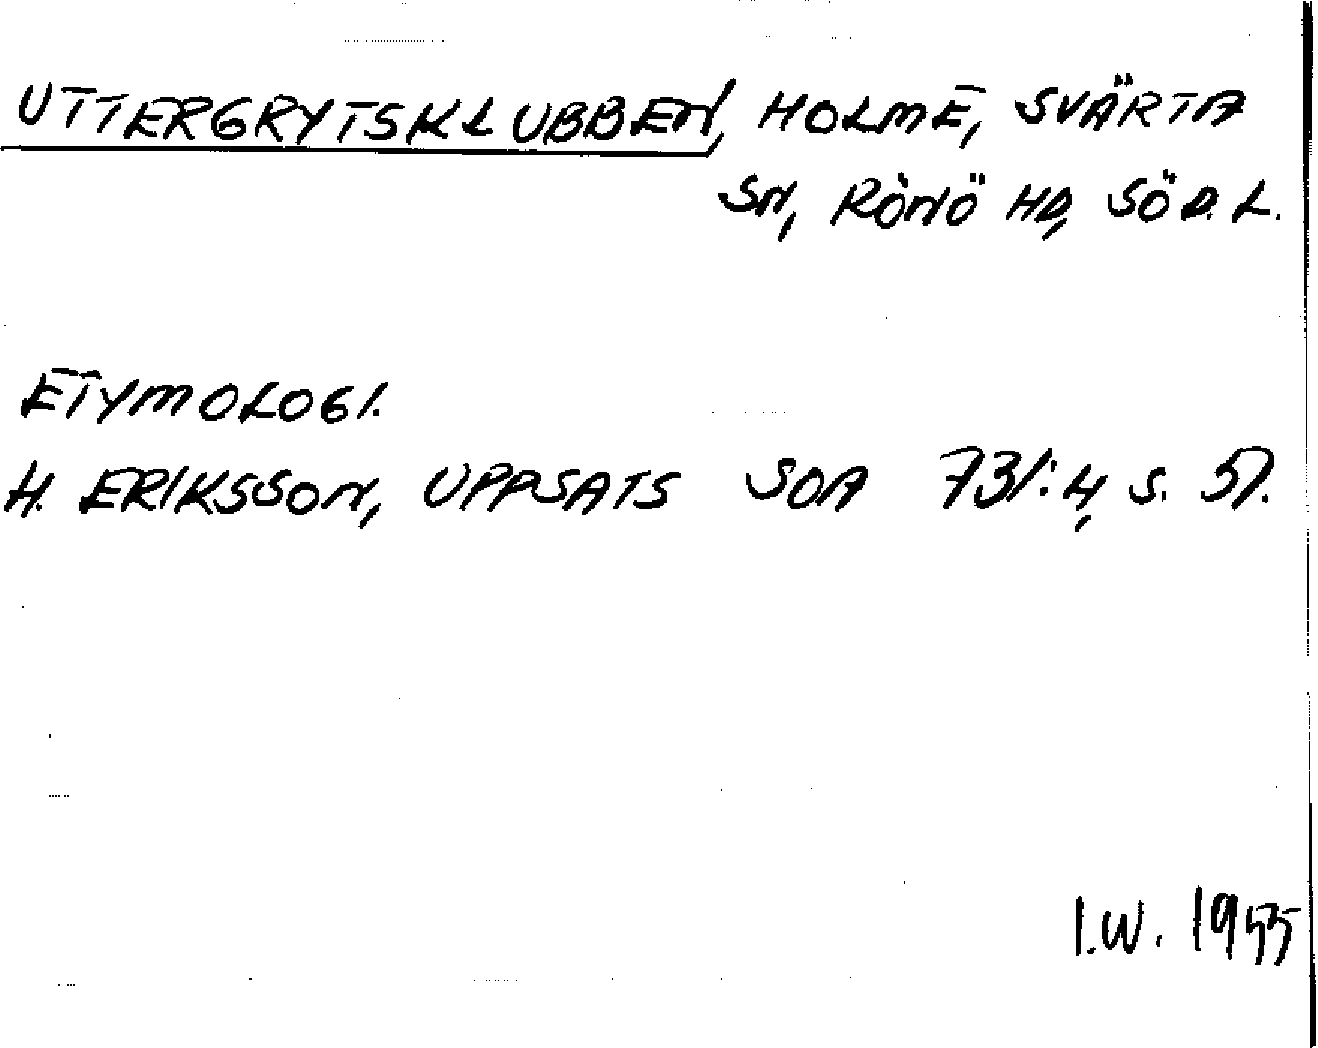 UTTERGRYTSKLUBBEN, HOLME, SVÄRTA
SN, RÖNÖ HD, SÖD. L.
ETYMOLOGI.
H. ERIKSSON, UPPSATS SOA 731:4, S. 57.
I.W. 1955